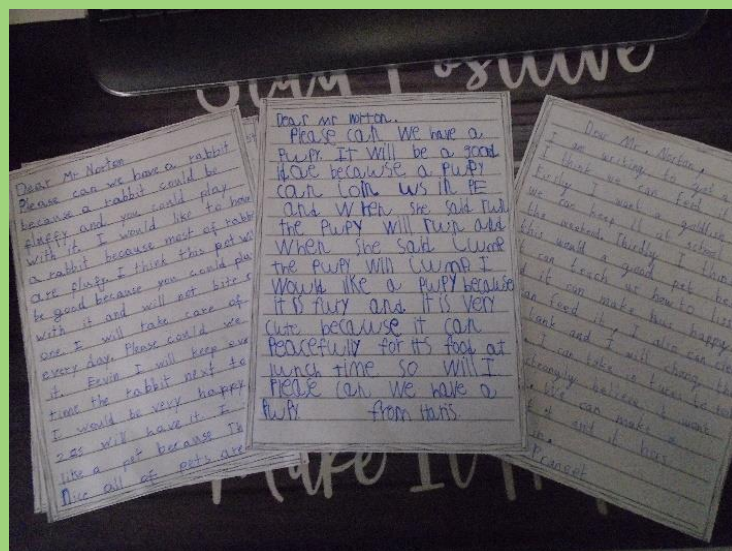 Stay Positive
Dear Mr Norton
Please can we have a rabbit
because a rabbit could be
fluffy and you could play
with it. I would like to
a rabbit because most of
are I think this pet
be good because you could
with it and will not bite
one. I will take care of
every day. Please could we
it. I will keep
time the rabbit next to
I would be very happy
will have it. I
like a pet because
Nice all of pets are
Dear Mr Norton.
Please can we have a
PuPy. It will be a good
because a PuPy
can Loin us in PE
and when she said run
the PuPy will run and
When she said Lump
the PuPy will Lump I
would like a PuPy because
it is flury and it is very
cute because it can
Peacefully for its food at
lunch time so will I
Please can we have a
PuPy from Haris
Dear Mr. Norton,
I am writing to get a
I think we can feed it
I want a goldfish
we can keep it at school
the weekend. Thirdly I think
this would a good pet
can teach us how to
it can make you happy
can feed it, I also can
tank and I will change the
I can take it
believe it
we can make a
it
Make It